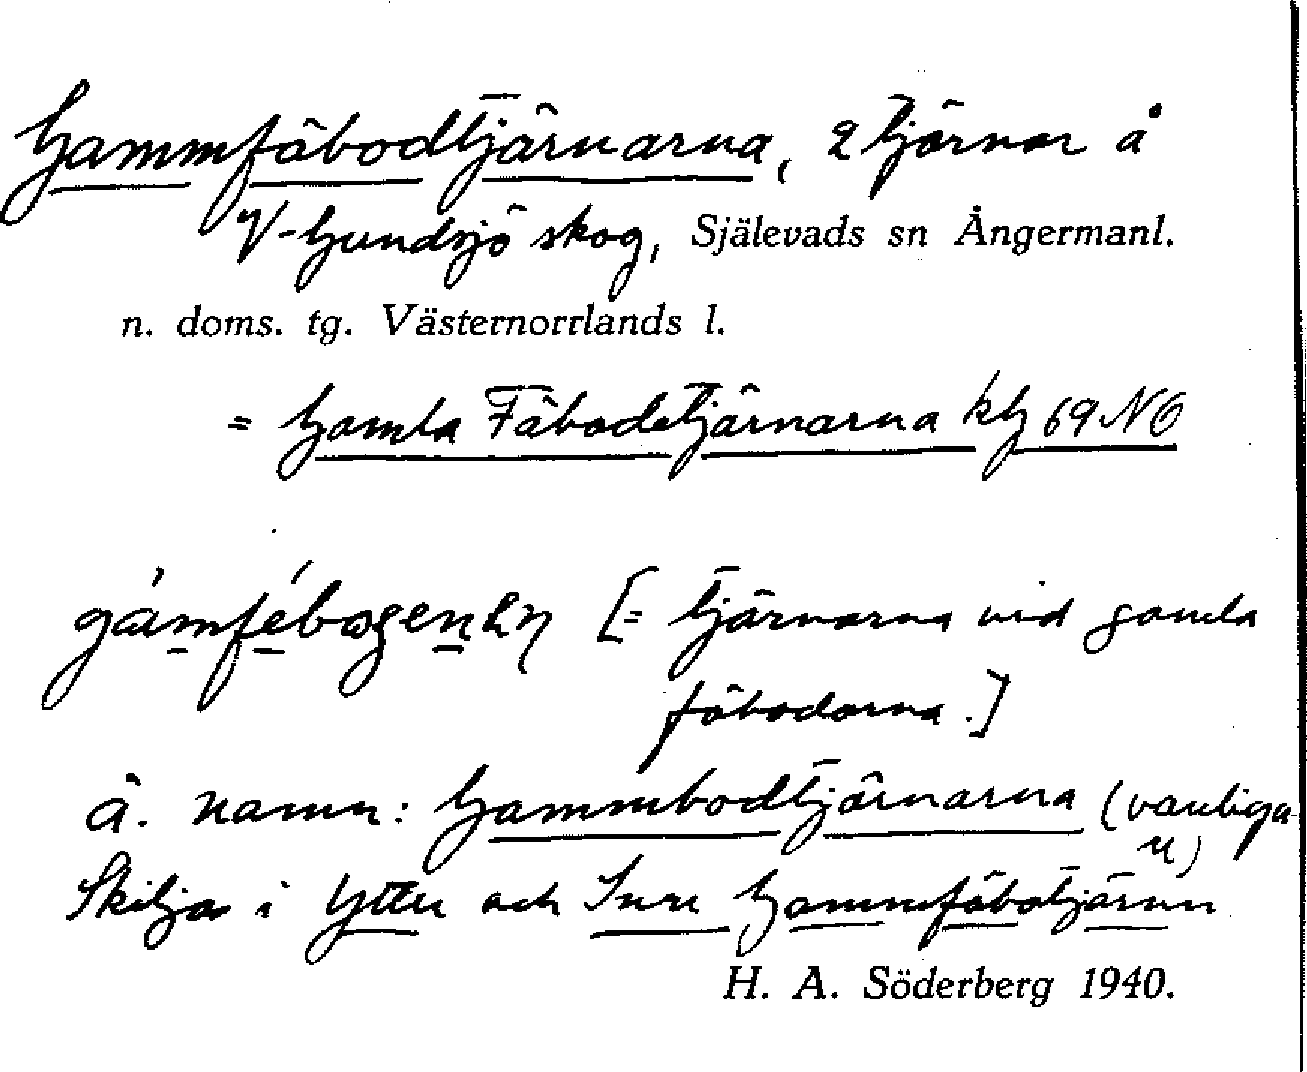 Gammfäbodtjärnarna, 2 tjärnar å
V-Gundsjö skog, Själevads sn Ångermanl.
n. doms. tg. Västernorrlands l.
= Gamla Fäbodetjärnarna kbl 69 NO
[= tjärnarna vid gamla
fäbodarna.]
a. namn: Gammbodtjärnarna (vanliga
n)
Skiljas i Yttre och Inre Gammfäbotjärnen
H. A. Söderberg 1940.